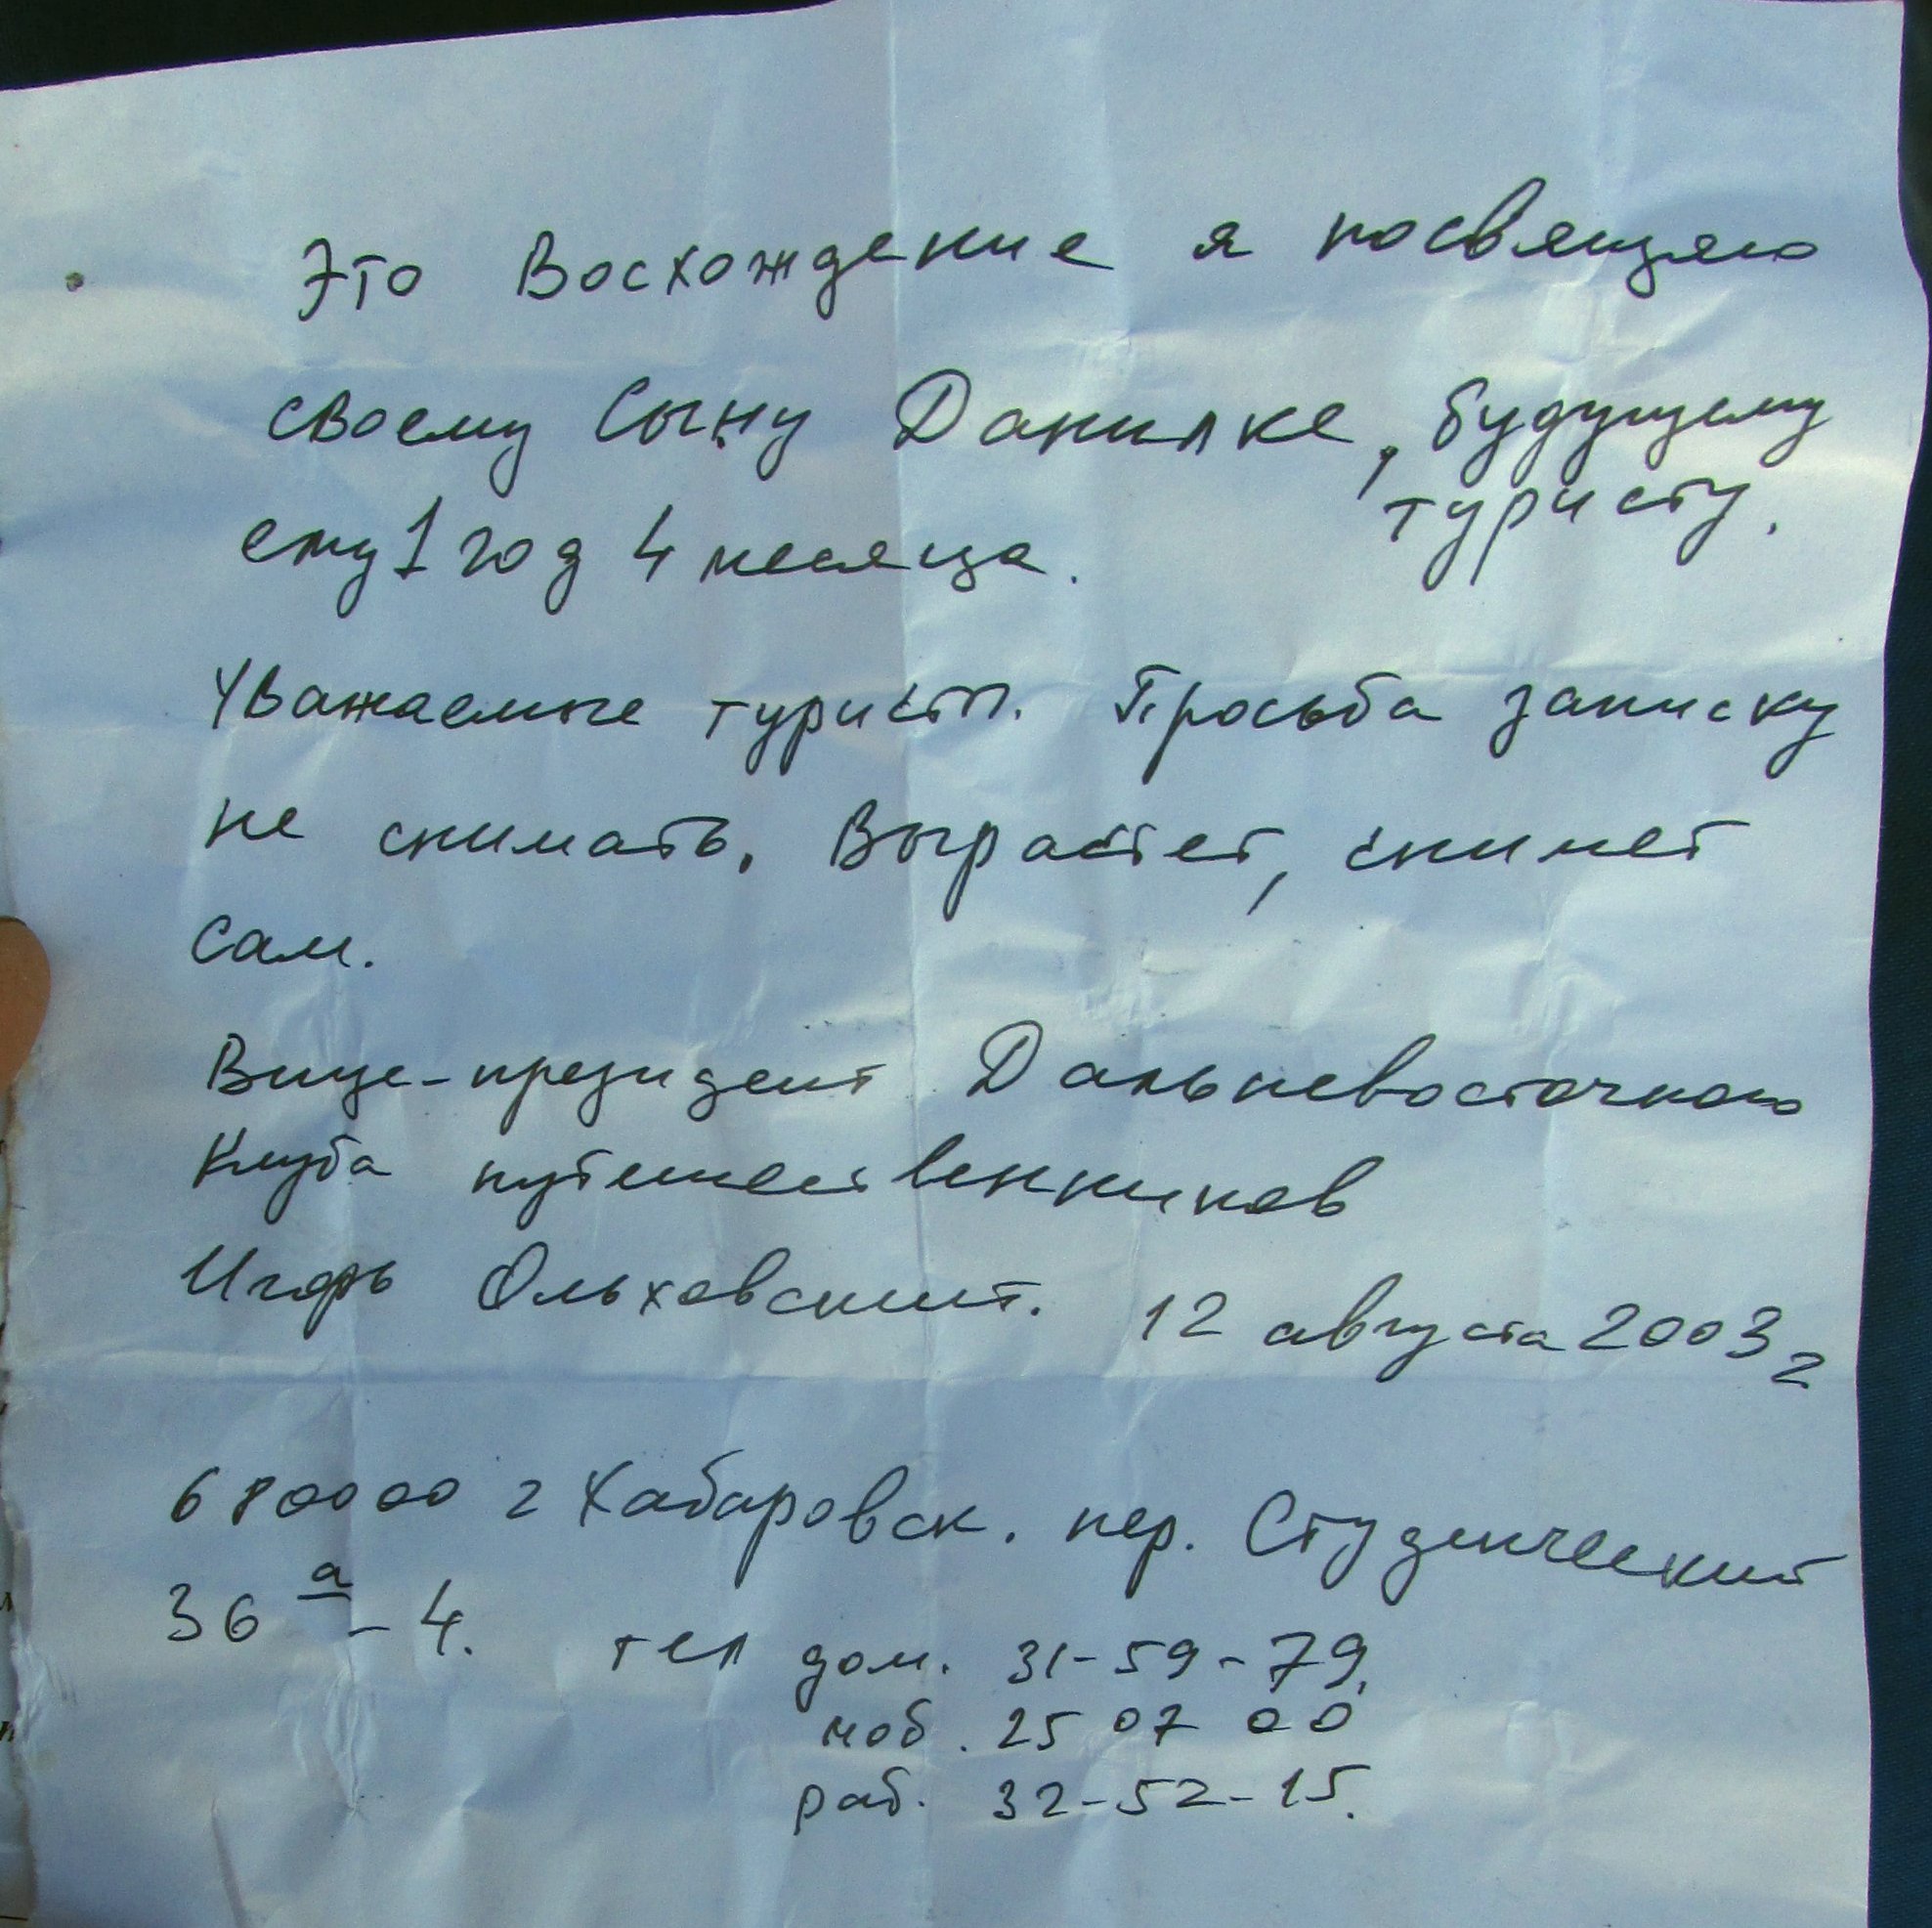 Это Восхождение я посвящаю
своему Сыну Данилке, будущему
туристу.
ему 1 год 4 месяца.
Уважаемые туристы. Просьба записку
не снимать. Вырастет, снимет
сам.
Вице-президент Дальневосточного
Клуба путешественников
Игорь Ольховский. 12 августа 2003 г
680000 г Хабаровск. пер. Студенческий
36 а - 4. тел дом. 31-59-79.
моб. 25 07 00
раб. 32-52-15.